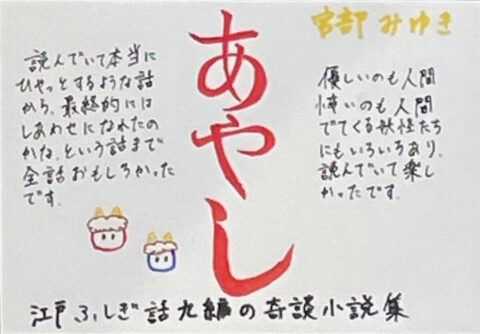 宮部みゆき
あやし
優しいのも人間
怖いのも人間
でてくる妖怪たち
にもいろいろあり、
読んでいて楽し
かったです。
読んでいて本当に
ひやっとするような話
から、最終的には
しあわせになれたの
かな、という話まで
全話おもしろかった
です。
江戸ふしぎ話九編の奇談小説集